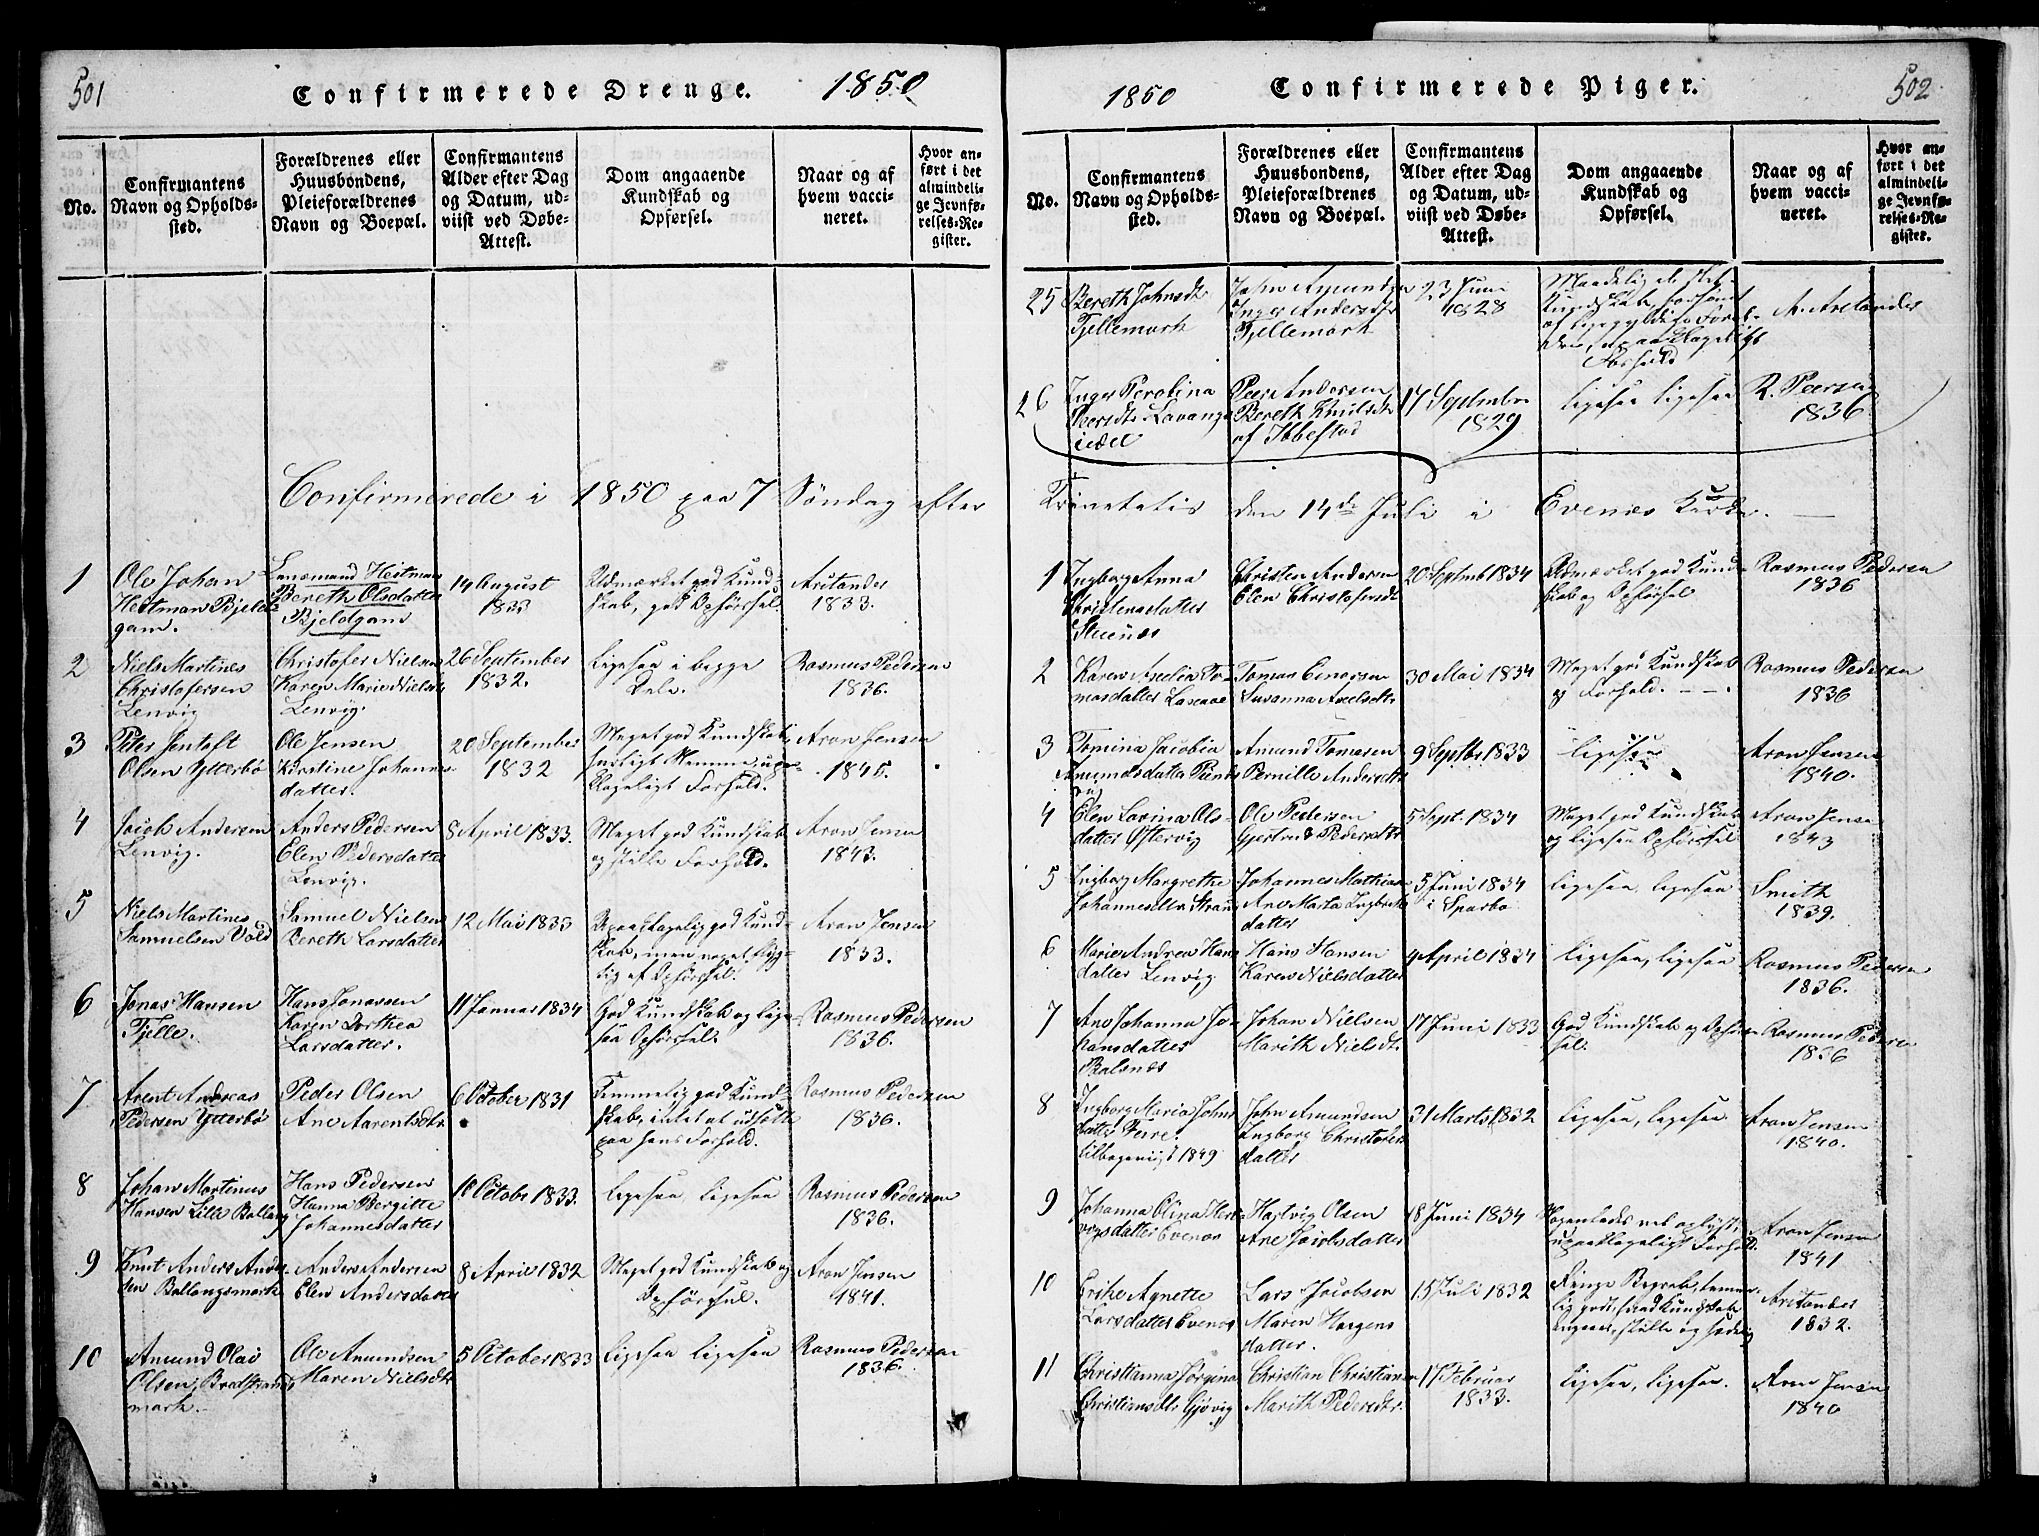 501
Confirmerede Drenge.
1850
No.
Confirmantens
Navn og Opholds-
sted.
Forældrenes eller
Huusbondens,
Pleieforældrenes
Navn og Boepæl.
Confirmantens
Alder efter Dag
og Datum, ud-
viist ved Døbe-
Attest.
Dom angaaende
Kundskab og
Opførsel.
Naar og af
hvem vacci-
neret.
Hvor an-
ført i det
almindeli-
ge Jevnfø-
relses-Re-
gister.
Confirmerede i 1850 paa 7 Søndag efter
1
Ole Johan
Heitman Bjeld-
gam.
Lensmand Heitman
Bereth Olsdatter
Bjeldgam
14 August
1833
Udmærket god Kund-
skab, god Opførsel.
Aristander
1833.
2
Niels Martines
Christofersen
Lenvig
Christofer Nielsen
Karen Marie Nielsdt
Lenvig.
26 September
1832.
Ligesaa i begge
Dele.
Rasmus Pedersen
1836.
3
Peter Jentoft
Olsen Ytterbø
Ole Jensen
Kirstine Johannes-
datter.
20 September
1832
Meget god Kundskab,
hurtigt Nemme, upa-
klageligt Forhold.
Aron Jensen
1845.
4
Jacob Andersen
Lenvig.
Anders Pedersen
Elen Pedersdatter
Lenvig.
8 April 1833.
Meget god Kundskab
og stille Forhold.
Aron Jensen
1843.
5
Niels Martines
Samuelsen Vold
Samuel Nielsen
Bereth Larsdatter
12 Mai 1833
Upaaklagelig god Kund-
skab, men noget
af Opførsel.
Aron Jensen
1833.
6
Jonas Hansen
Fjelle.
Hans Jonassen
Karen Dorthea
Larsdatter.
11 Januar 1834
God Kundskab og lige-
saa Opførsel.
Rasmus Pedersen
1836.
7
Arent Andreas
Pedersen Ytterbø
Peder Olsen
Ane Aarentsdtr
6 October 1831
Temmelig god Kund-
skab, intet at udsætte
paa hans Forhold.
Rasmus Pedersen
1836.
8
Johan Martinus
Hansen Lille Ballang
Hans Pedersen
Hanna Bergitte
Johannesdatter
10 Octobr 1833.
Ligesaa, ligesaa
Rasmus Pedersen
1836.
9
Knut Anders Ander-
sen Ballangsmark
Anders Andersen
Elen Andersdatter
8 April 1832
Meget god Kundskab og
Opførsel.
Aron Jensen
1841.
10
Amund Olai
Olsen, Bredstrand
mark.
Ole Amundsen
Maren Nielsdtr
5 October 1833
Ligesaa ligesaa
Rasmus Pedersen
1836.
1850
Confirmerede Piger.
502
No.
Confirmantens
Navn og Opholds-
sted.
Forældrenes eller
Huusbondens,
Pleieforældrenes
Navn og Boepæl.
Confirmantens
Alder efter Dag
og Datum, ud-
viist ved Døbe-
Attest.
Dom angaaende
Kundskab og
Opførsel.
Naar og af
hvem vacci-
neret.
Hvor an-
ført i det
almindeli-
ge Jevnfø-
relses-Re-
gister.
25
Bereth Johnsdt
Fjellemark
John Amundsen
Inger Andersdtr
Fjellemark
23 Juni
1828
Maadelig
Kundskab, forsømt
af ligegyldige Foræl-
dre, upaaklageligt
Forhold
A. Aristander
26
Inger Perolina
Peersdtr Lavangs
eidet
Peer Andersen
Bereth Knudsdtr
af Ibbestad
17 September
1829
Ligesaa ligesaa
R. Peersen
1836
Trinetatis den 14de Juli i Evenæs Kirke.
1
Ingborg Anna
Christensdatter
Stuenæs
Christen Andersen
Elen Christofersdt
20 Septmb 1834
Udmærket god Kund-
skab og Opførsel
Rasmus Pedersen
1836
2
Karen Axelia To-
masdatter
Tomas Einersen
Susanna Axelsdtr
30 Mai 1834
Meget god Kundskab
og Forhold.
Rasmus Pedersen
1836
3
Tomina Jacobia
Amundsdatter
Amund Tomesen
Pernille Andersdtr
9 Septbr 1833
Ligesaa
Aron Jensen
1840.
4
Elen Lovina Ols-
datter Østervig
Ole Pedersen
Gjertrud Pedersdtr
5 Sept. 1834
Meget god Kundskab
og ligesaa Opførsel
Aron Jensen
1843
5
Ingborg Margrethe
Johannesdtr Strand
Johannes Mathisen
Ane Marta Ingbrikts
datter
5 Juni 1834
i Sparbo
Ligesaa, ligesaa
Smith
1839.
6
Marie Andrea Hans
datter Lenvig
Hans Hansen
Karen Nielsdatter
4 April 1834
Ligesaa, ligesaa
Rasmus Pedersen
1836.
7
Ane Johanna Jo-
hansdatter
Balsnæs
Johan Nielsen
Marith Nielsdtr
17 Juni 1833
God Kundskab og Opfør-
sel.
Rasmus Pedersen
1836
8
Ingborg Maria Johns
datter
tilbageviist 1849
John Amundsen
Ingborg Christofers
datter
31 Marts 1832
Ligesaa, ligesaa
Aron Jensen
1840.
9
Johanna Olina Hart-
vigsdatter Evenæs
Hartvig Olsen
Ane Jacobsdatter
18 Juni 1834
Nogenledes vel oplyst,
upaaklageligt Forhold.
Aron Jensen
1841
10
Erike Agnette
Larsdatter Evenæs
Lars Jacobsen
Maren Hargens
datter.
15 Juli 1832
Ringe Begreb, temme-
lig god Kundskab
stille og sædelig
Aristander
1832.
11
Christianna Jørgina
Christiansdtr Gjøvig
Christian Christiansen
Marith Pedersdtr.
17 Februar
1833.
Ligesaa, ligesaa.
Aron Jensen
1840